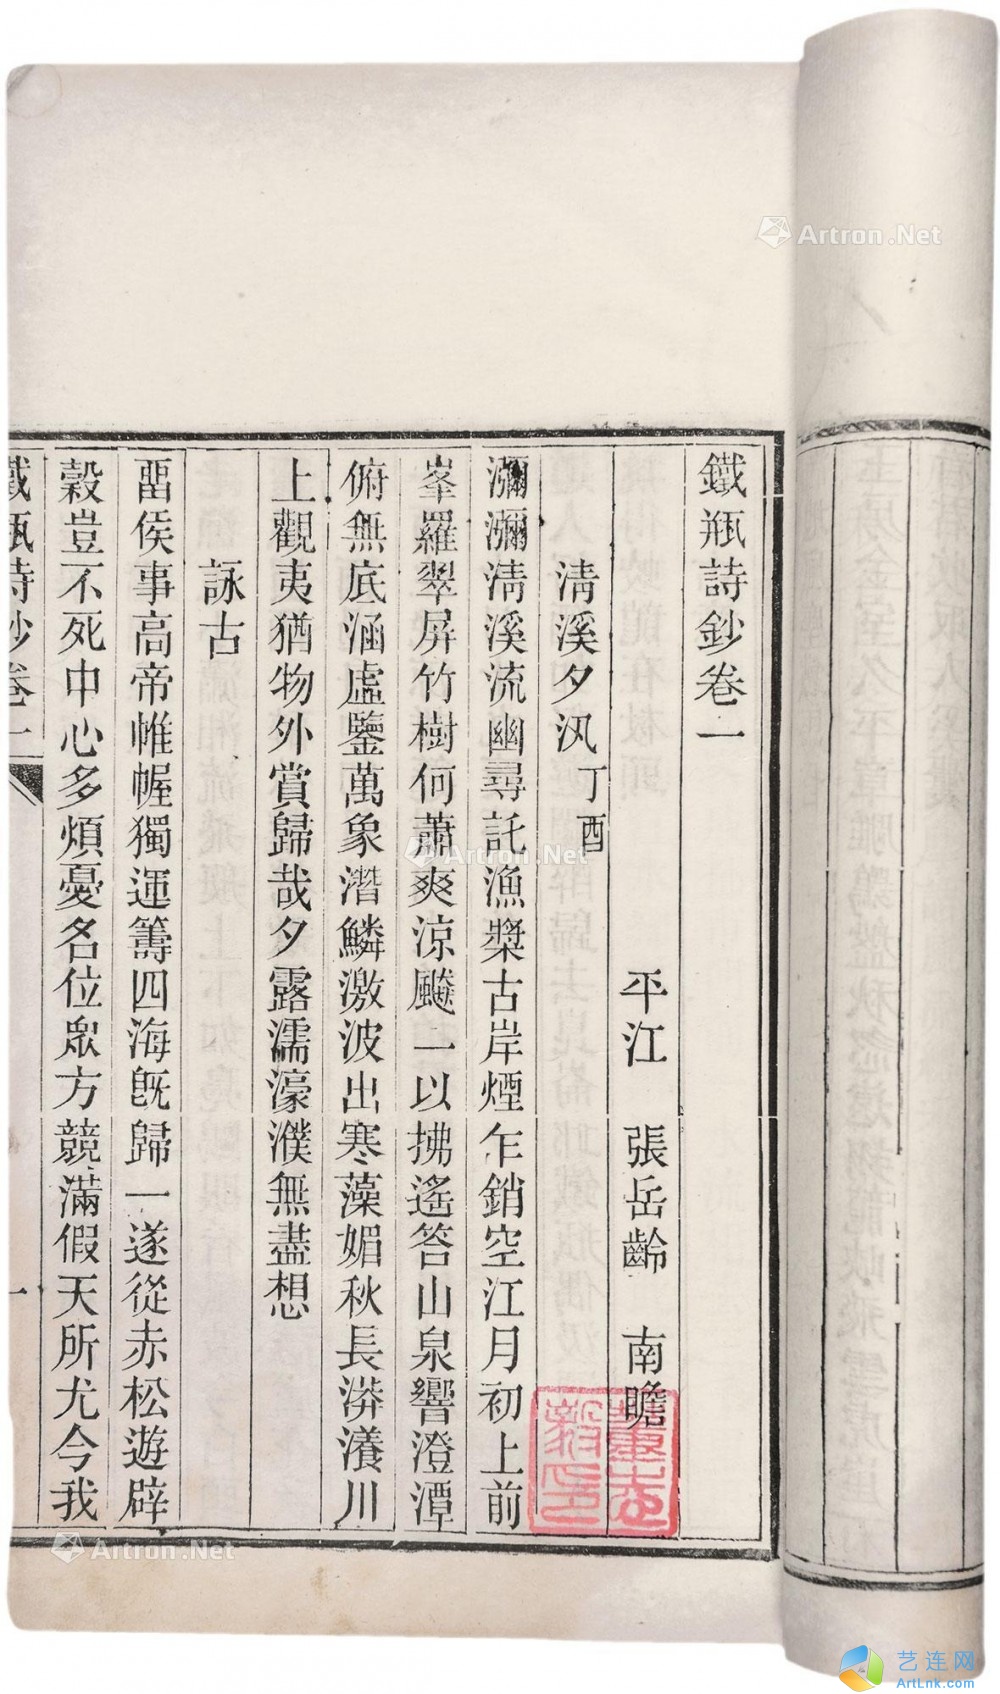 鐵瓶詩鈔卷一
平江　張岳齡　南瞻
清溪夕汎丁酉
瀰瀰清溪流幽尋託漁槳古岸煙乍銷空江月初上前
峯羅翠屏竹樹何蕭爽涼飈一以拂遙答山泉響澄潭
俯無底涵虛鑒萬象潛鱗激波出寒藻媚秋長漭瀁川
上觀夷猶物外賞歸哉夕露濡濠濮無盡想
詠古
畱侯事高帝帷幄獨運籌四海旣歸一遂從赤松遊辟
穀豈不死中心多煩憂名位眾方競滿假天所尤今我
鐵瓶詩鈔卷一
一
Artron.Net
Artron.Net
Artron.Net
艺连网
ArtLnk.com